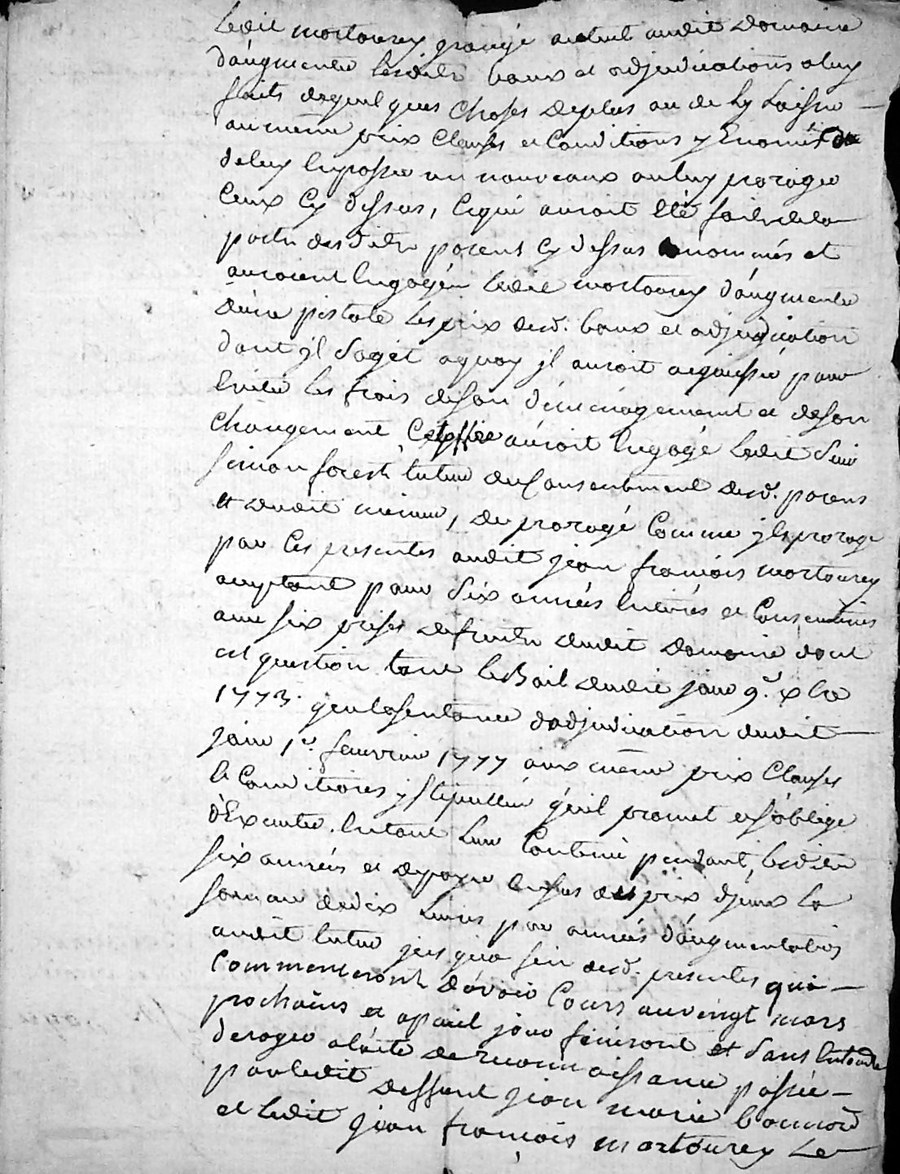 ledit mortourey grangé actuel audit Domaine
d'augmenter lesdits baux et adjudications a luy
faits de quelques Choses de plus ou de luy Laisser
au meme prix Clauses et Conditions y Enoncés
de luy en passer un nouveaux ou luy proroger
Ceux Cy dessus, ce qui auroit été fait de la
part desdits parens Cy dessus nommés et
auroient Engagéz ledit mortourey d'augmenter
d'une pistole les prix desd. baux et adjudication
dont jl Sagit aquoy jl auroit acquiessé pour
Eviter les frais de son déménagement et de son
Changement, Ce auroit Engagé ledit Sieur
simon forest tuteur du Consentement desd. parens
et dudit mineur, de prorogé Comme jl proroge
par Ces presentes audit jean françois mortourey
aceptant pour Six années Entieres et Consecutives
aux six prises de fruits dudit Domaine dont
est question tant le Bail dudit jour 9e. xbre
1773. que la sentance d'adjudication dudit
jour 1er. feuvrier 1777 aux meme prix Clauses
et Conditions y Stipullées qu'il promet et s'oblige
d'Executer Entout Leur Contenu pendant lesdites
six années et de payer en sus du prix d'jceux la
somme de dix Livres par années d'augmentation
audit tuteur jusqua fin desd. presentes qui
Commenceront d'avoir Cours au vingt mars
prochains et apareil jour finiront et Sans Entendre
deroger alacte de reconnoissance passée
par ledit deffunt jean marie
et ledit jean françois mortourey Le